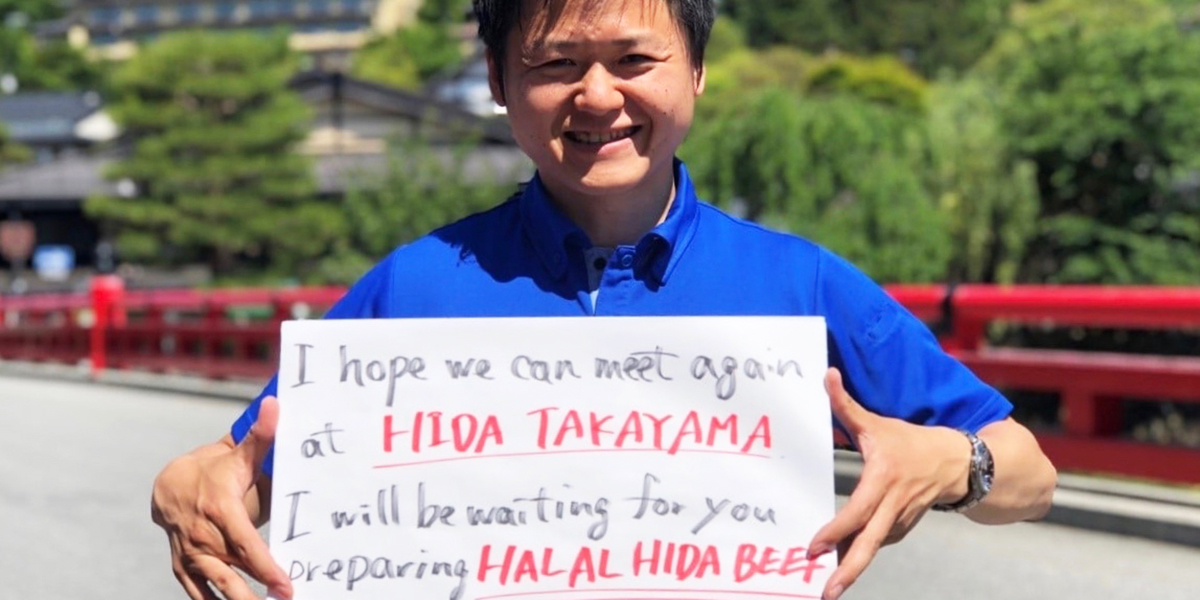 I hope we can meet again
at HIDA TAKAYAMA
I will be waiting for you
preparing HALAL HIDA BEEF